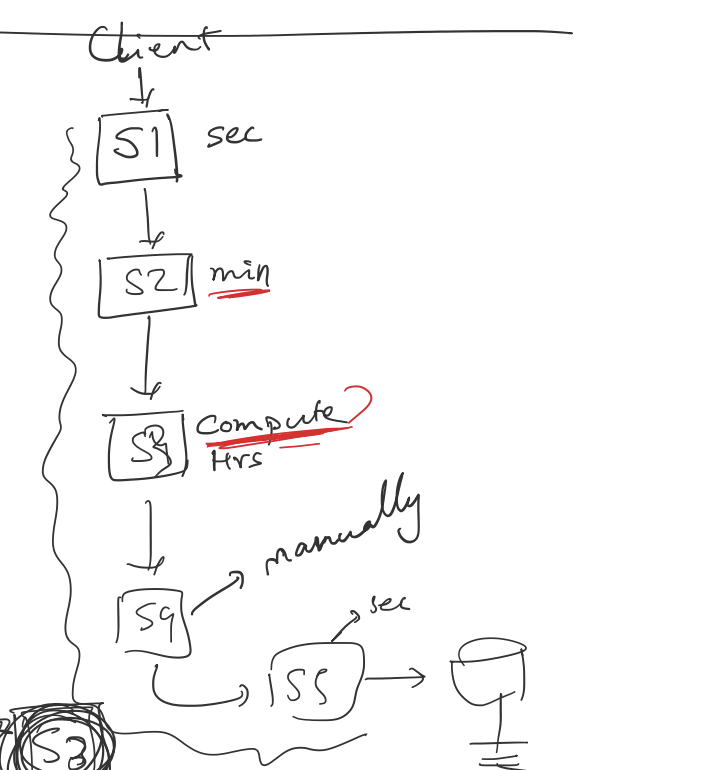 Client
S1 sec
S2 min
S3 Compute
Hrs
manually
S4
sec
S5
S3